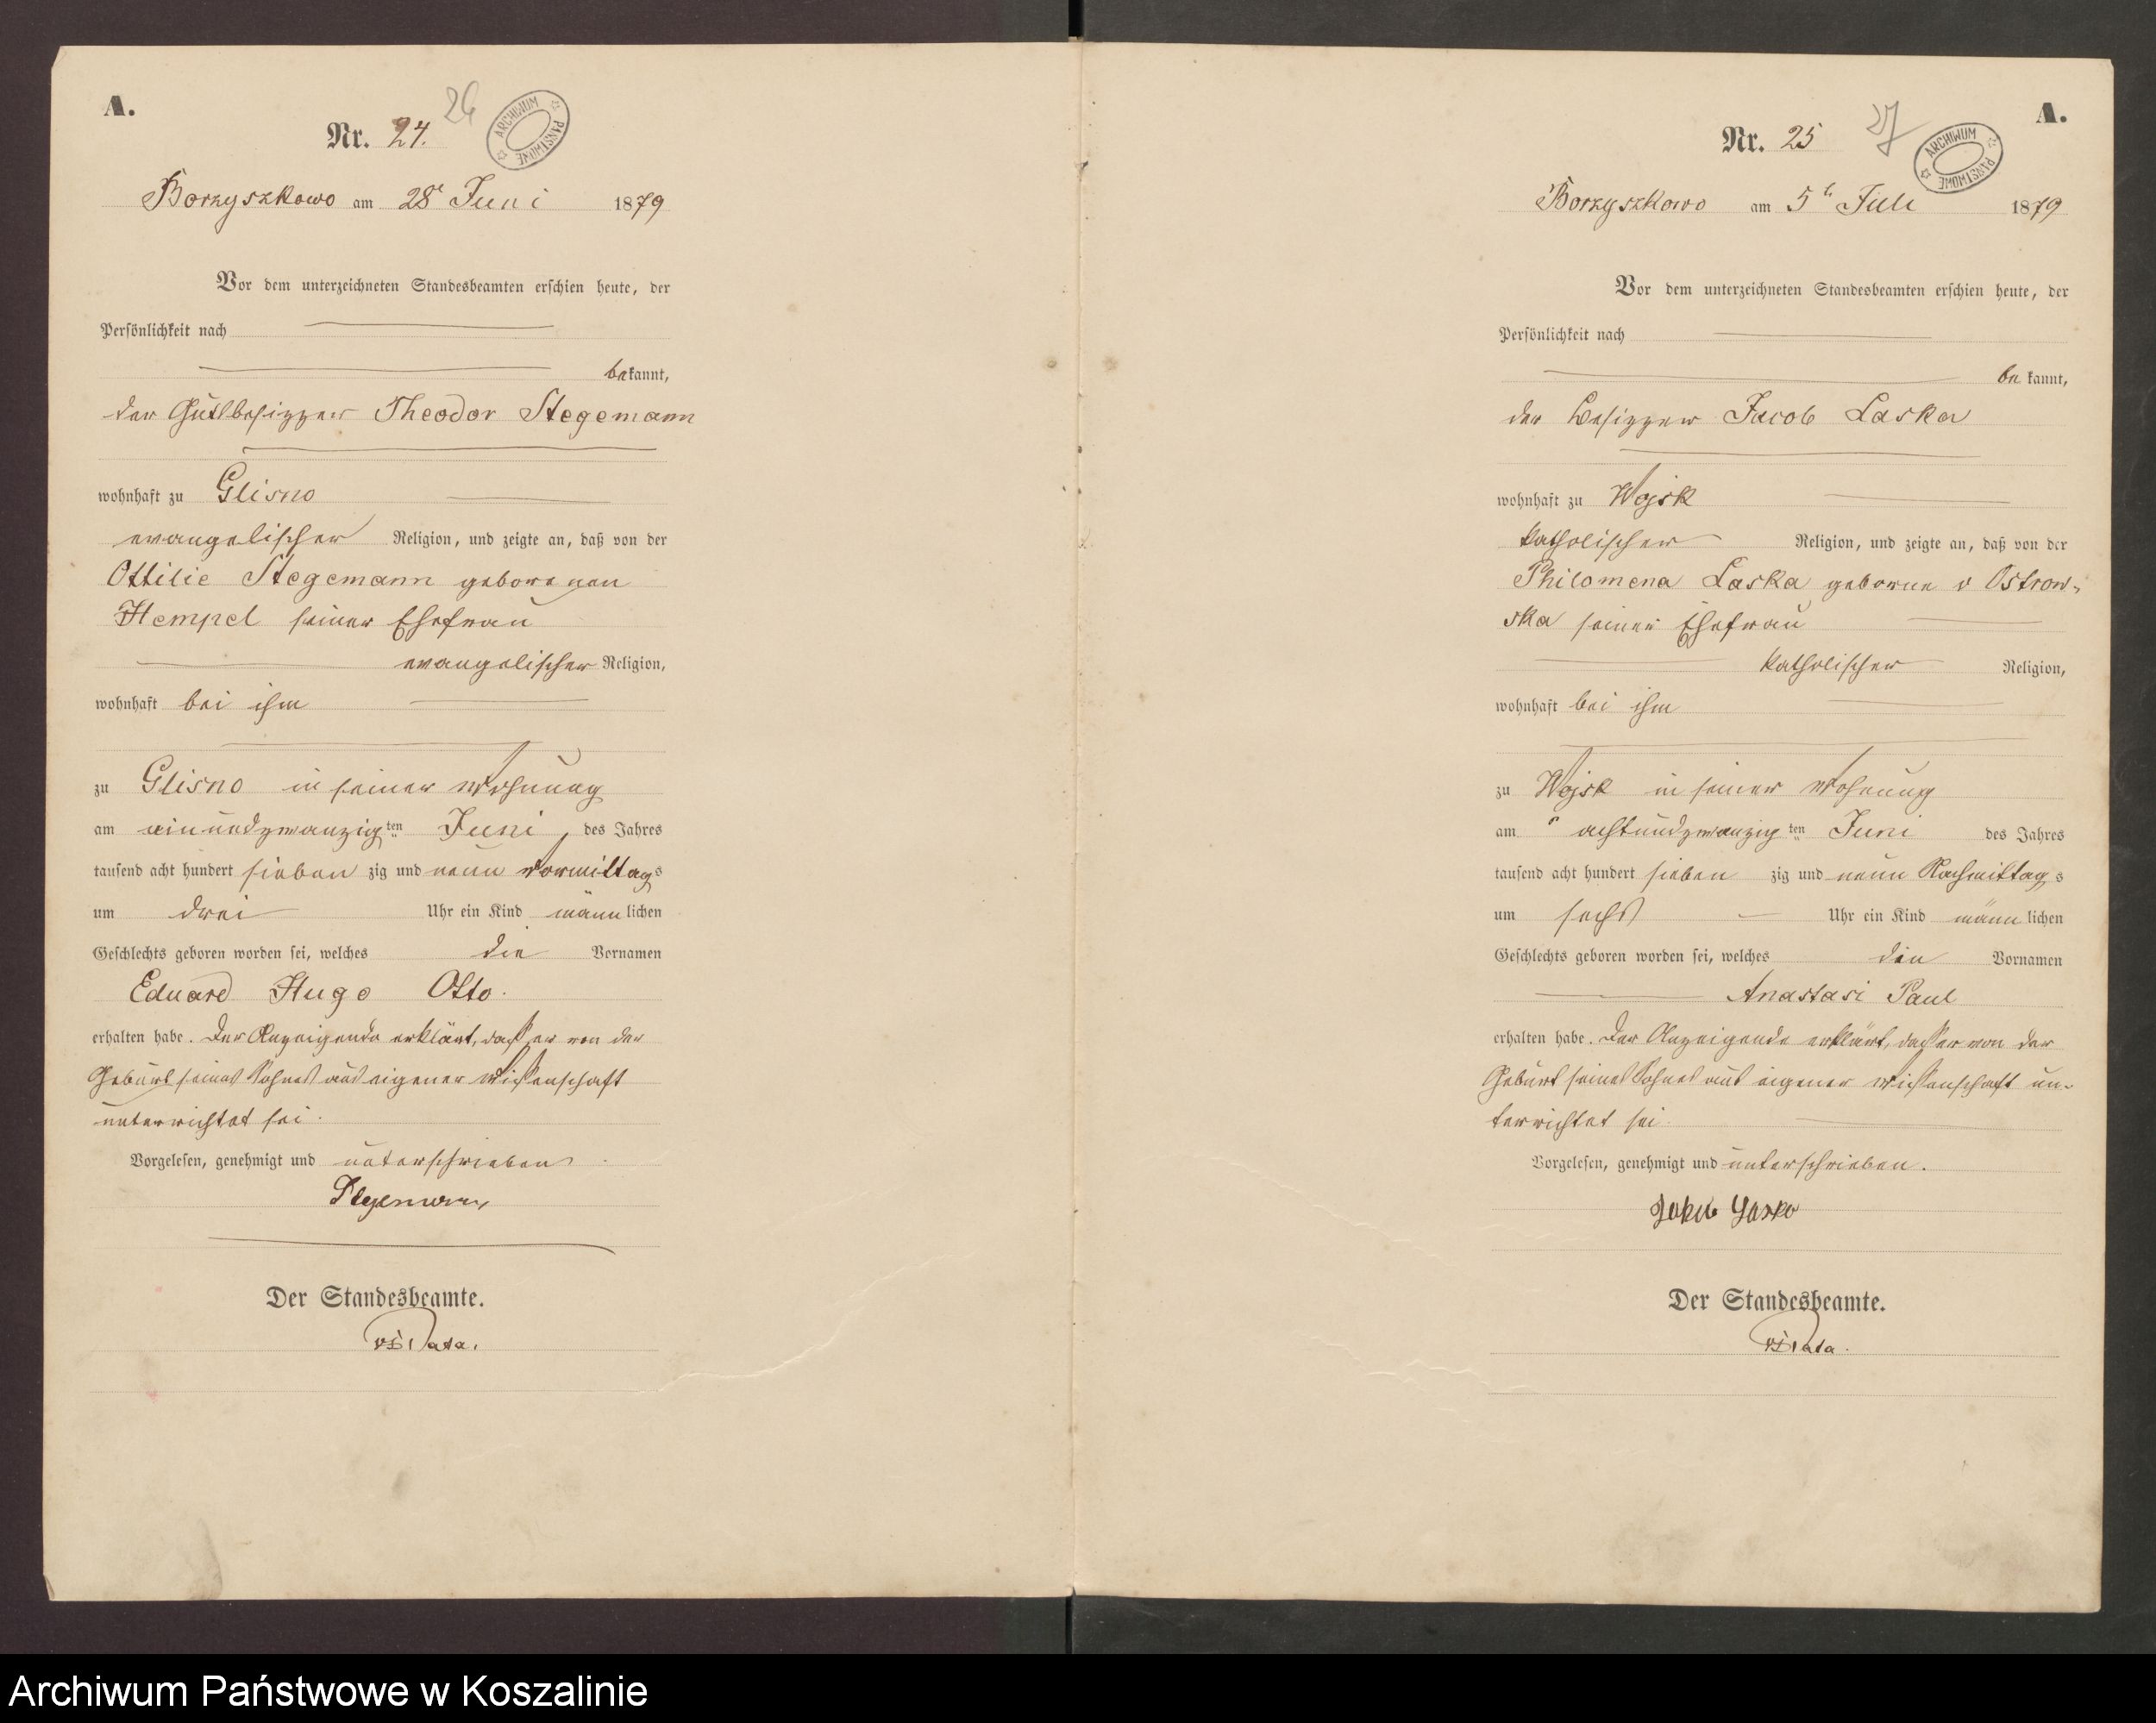 A.
Nr. 24.
26
ARCHIWUM PAŃSTWOWE
Borzyszkowo am 28t Juni 1879
Vor dem unterzeichneten Standesbeamten erschien heute, der
Persönlichkeit nach
bekannt,
der Gutsbesizzer Theodor Stegemann
wohnhaft zu Glisno
evangelischer Religion, und zeigte an, daß von der
Ottilie Stegemann geborenen
Hempel seiner Ehefrau
evangelischer Religion,
wohnhaft bei ihm
zu Glisno in seiner Wohnung
am einundzwanzigten Juni, des Jahres
tausend acht hundert siebenzig und neun Vormittags
um drei Uhr ein Kind männlichen
Geschlechts geboren worden sei, welches die Vornamen
Eduard Hugo Otto.
erhalten habe. Der Anzeigende erklärt, dass er von der
Geburt seines Sohnes aus eigener Wissenschaft
unterrichtet sei.
Vorgelesen, genehmigt und unterschrieben.
Stegemann
Der Standesbeamte.
A.
Nr. 25
27
ARCHIWUM PAŃSTWOWE
Borzyszkowo am 5t Juli 1879
Vor dem unterzeichneten Standesbeamten erschien heute, der
Persönlichkeit nach
bekannt,
der Besizzer Jacob Laska
wohnhaft zu Wojsk
katholischer Religion, und zeigte an, daß von der
Philomena Laska geborne v Ostrow-
ska seiner Ehefrau
katholischer Religion,
wohnhaft bei ihm
zu Wojsk in seiner Wohnung
am achtundzwanzigten Juni des Jahres
tausend acht hundert siebenzig und neun Nachmittags
um sechs Uhr ein Kind männlichen
Geschlechts geboren worden sei, welches den Vornamen
Anastasi Paul
erhalten habe. Der Anzeigende erklärt, dass er von der
Geburt seines Sohnes aus eigener Wissenschaft un-
terrichtet sei.
Vorgelesen, genehmigt und unterschrieben.
Der Standesbeamte.
Archiwum Państwowe w Koszalinie